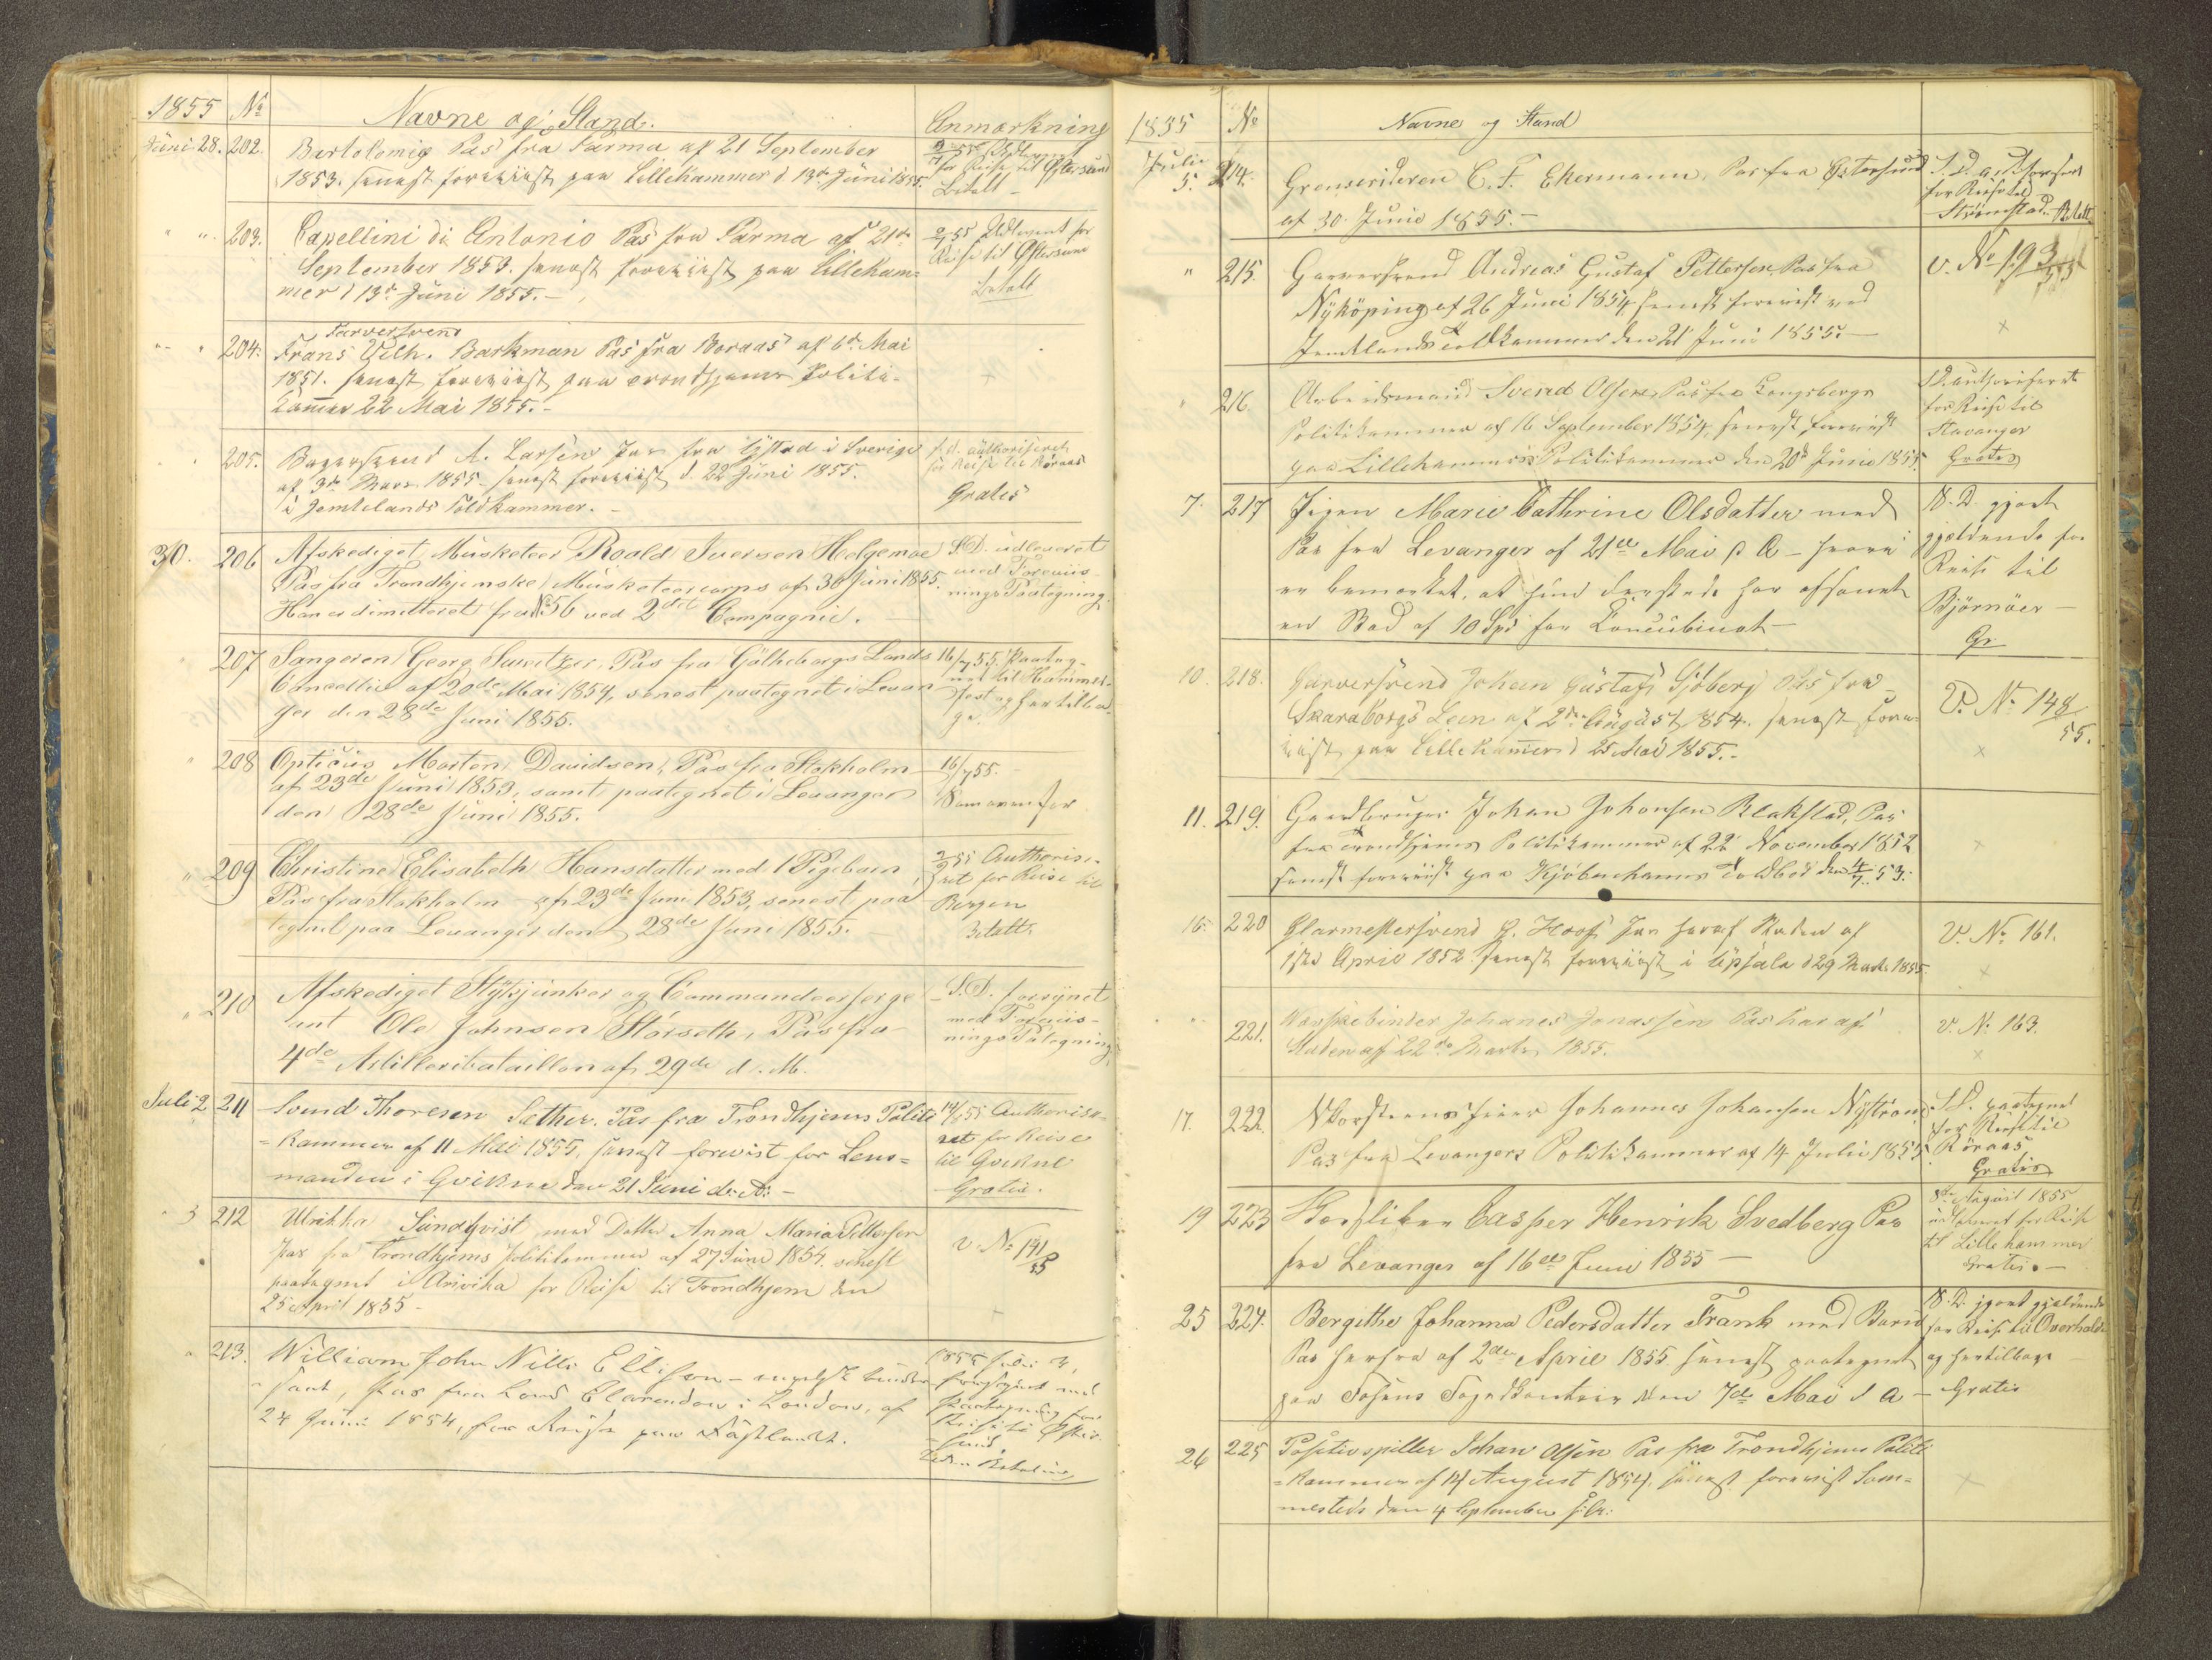 1855 No Navne og Stand. Anmærkning
Juni 28. 202. Bartolomig Pas fra Parma af 21 September
1853. senest foreviist paa Lillehammer d 13de Juni 1855.
for Reise til Østersund
Betalt
" " 203. Capellini di Antonio Pas fra Parma af 21de
September 1853. senest foreviist paa Lilleham-
mer d 13de Juni 1855.
2/7 55 Udleveret for
Reise til Østersund
Betalt
" " 204. Farversvend
Frans Vilh. Barkman Pas fra Boraas af 6te Mai
1851. senest foreviist paa Trondhjems Politi-
kammer 22 Mai 1855.-
205. Bagersvend A. Larsen Pas fra Ystad i Sverige
af 3de Mars 1855. senest foreviist d. 22 Juni 1855.
i Jemtelands Toldkammer.
S.d. authoriseret
for Reise til Röraas
Gratis
30. 206 Afskediget Musketeer Roald Iversen Helgemoe
Pas fra Trondhjemske Musketeercorps af 30 Juni 1855.
Han er dimitteret fra No 56 ved 2det Compagnie.
S.D. udleveret
med Foreviis-
nings Paategning.
207 Sangeren Georg Pas fra Götheborgs Lands
Cancellie af 20de Mai 1854, senest paategnet i Levan
ger den 28de Juni 1855.
16/7 55. Paateg-
net til Hammer-
fest og hertilba-
ge.
208 Opticus Morten Davidsen, Pas fra Stokholm
af 23de Juni 1853, samt paategnet i Levanger
den 28de Juni 1855.
16/7 55.
Som ovenfor
" 209 Christine Elisabeth Hansdatter med 1 Pigebarn,
Pas fra Stokholm af 23de Juni 1853, senest paa
tegnet paa Levanger den 28de Juni 1855.
2/7 55 Authorise-
ret for Reise til
Bergen
Betalt.
" 210 Afskediget Stykjunker og Commandeerserge
ant Ole Johnsen Störseth, Pas fra
4de Artilleribataillon af 29de d. M.
S.D. forsynet
med Foreviis-
nings Påtegning.
Juli 2 211 Svend Thoresen Sæther. Pas fra Trondhjems Politi
=kammer af 11 Mai 1855, senest forevist for Lens=
manden i Qvikne den 21 Juni d: A: -
14/7 55 Authorise-
ret for Reise
til Qvikne
Gratis.
" 3 212 Ulrikka Sundqvist med Datter Anna Maria Pettersen
Pas fra Trondhjems Politikammer af 27 Juni 1854. senest
paategnet i Arvika for Reise til Trondhjem den
25 April 1855 -
v. No 191/55
" 213. William John Ellison - engelsk
Pas fra Lord Clarendon i London, af
24 Juni 1854, for Reise paa Fastlandet.
1855 Juli 3,
forsynet med
Paategning for
Reise til Øster-
sund.
1855 No Navne og Stand
Julii
5. 214. Grenserideren C. F. Ekermann, Pas fra Østersund
af 30. Junii 1855.-
S.D. authoriseret
for Reise til
Strømstad. Betalt
" 215. Garversvend Andreas Gustaf Pettersen Pas fra
Nyköping af 26 Juni 1854 senest forevist ved
Jemtlands Toldkammer den 21 Juni 1855.-
v. No 193/55
" 216 Arbeidsmand Svend Olsen, Pas fra Kongsbergs
Politikammer af 16 September 1854, senest foreviist
paa Lillehammers Politikammer den 20de Junii 1855.
S.D. authoriseret
for Reise til
Stavanger
Gratis
7. 217 Pigen Marie Cathrine Olsdatter med
Pas fra Levanger af 21de Mai s. A - hvori
er bemærket, at hun dersteds har afsonet
en Bod af 10 Spd for Concubinat -
S. D. gjort
gjældende for
Reise til
Björnöer -
Gr
10. 218. Garversvend Johan Gustaf Sjöberg Pas fra
Skaraborgs Leen af 2de August 1854. senest fore-
viist paa Lillehammer d 25 Mai 1855.-
V. No 148/55.
11. 219. Gaardbruger Johan Johansen Blakstad, Pas
fra Trondhjems Politikammer af 22 November 1852
senest foreviist paa Kjöbenhavns Toldbod den 4/7. 53.
16. 220 Glarmestersvend H. Hoof Pas her af Staden af
1ste April 1852. senest foreviist i Upsala d 29 Marts 1855.
V. No 161.
" " 221. Vævskebinder Johanes Jonassen Pas her af
Staden af 22de Marts 1855.
v. No 163.
17. 222. Skorsteensfeier Johannes Johansen Nyström,
Pas fra Levangers Politikammer af 14 Julii 1855.
S.D. paategnet
for Reise til
Röraas
Gratis
19 223 Casper Henrik Svedberg Pas
fra Levanger af 16de Junii 1855 -
8de August 1855
udleveret for Reise
til Lillehammer
Gratis. -
25 224. Bergithe Johanna Pedersdatter Frank med Barn
Pas herfra af 2den April 1855 senest paategnet
paa Fosens Fogedkontoir den 7de Mai d. A -
S. D. gjort gjældende
for Reise til Overhalden
og hertilbage -
Gratis
26 225 Positivspiller Johan Olsen Pas fra Trondhjems Politi
=kammer af 14 August 1854, senest forevist Sam=
mesteds den 4 September f:A: